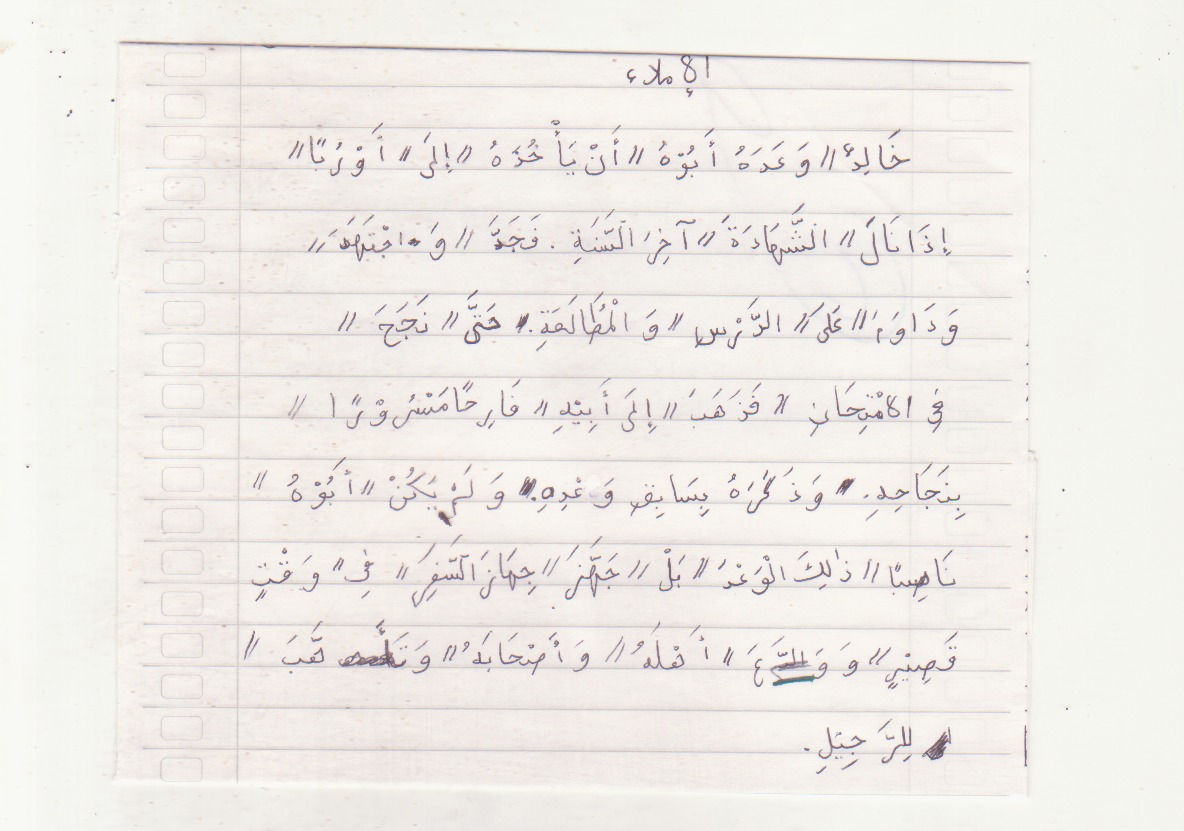 الإملاء
خَالِدٌ // وَعَدَهُ أَبُوْهُ // أَنْ يَأْخُذَهُ // إِلَى // أَوْرُبَّا //
إِذَا نَالَ // الشَّهَادَةَ // آخِرَ السَّنَةِ . فَجَدَّ // وَاجْتَهَدَ //
وَدَاوَمَ // عَلَى // الدَّرْسِ // وَ الْمُطَالَعَةِ . حَتَّى // نَجَحَ //
فِي الامْتِحَانِ // فَذَهَبَ // إِلَى أَبِيْهِ // فَارِحًا مَسْرُوْرًا //
بِنَجَاحِهِ . وَذَكَّرَهُ بِسَابِقِ وَعْدِهِ . وَلَمْ يَكُنْ // أَبُوْهُ //
نَاصِبًا // ذٰلِكَ الْوَعْدَ // بَلْ // جَهَّزَ // جِهَازَ السَّفَرِ // فِي // وَقْتٍ
قَصِيْرٍ // وَ وَدَّعَ // أَهْلَهُ // وَ أَصْحَابَهُ // وَ تَأَهَّبَ //
لِلرَّحِيْلِ .